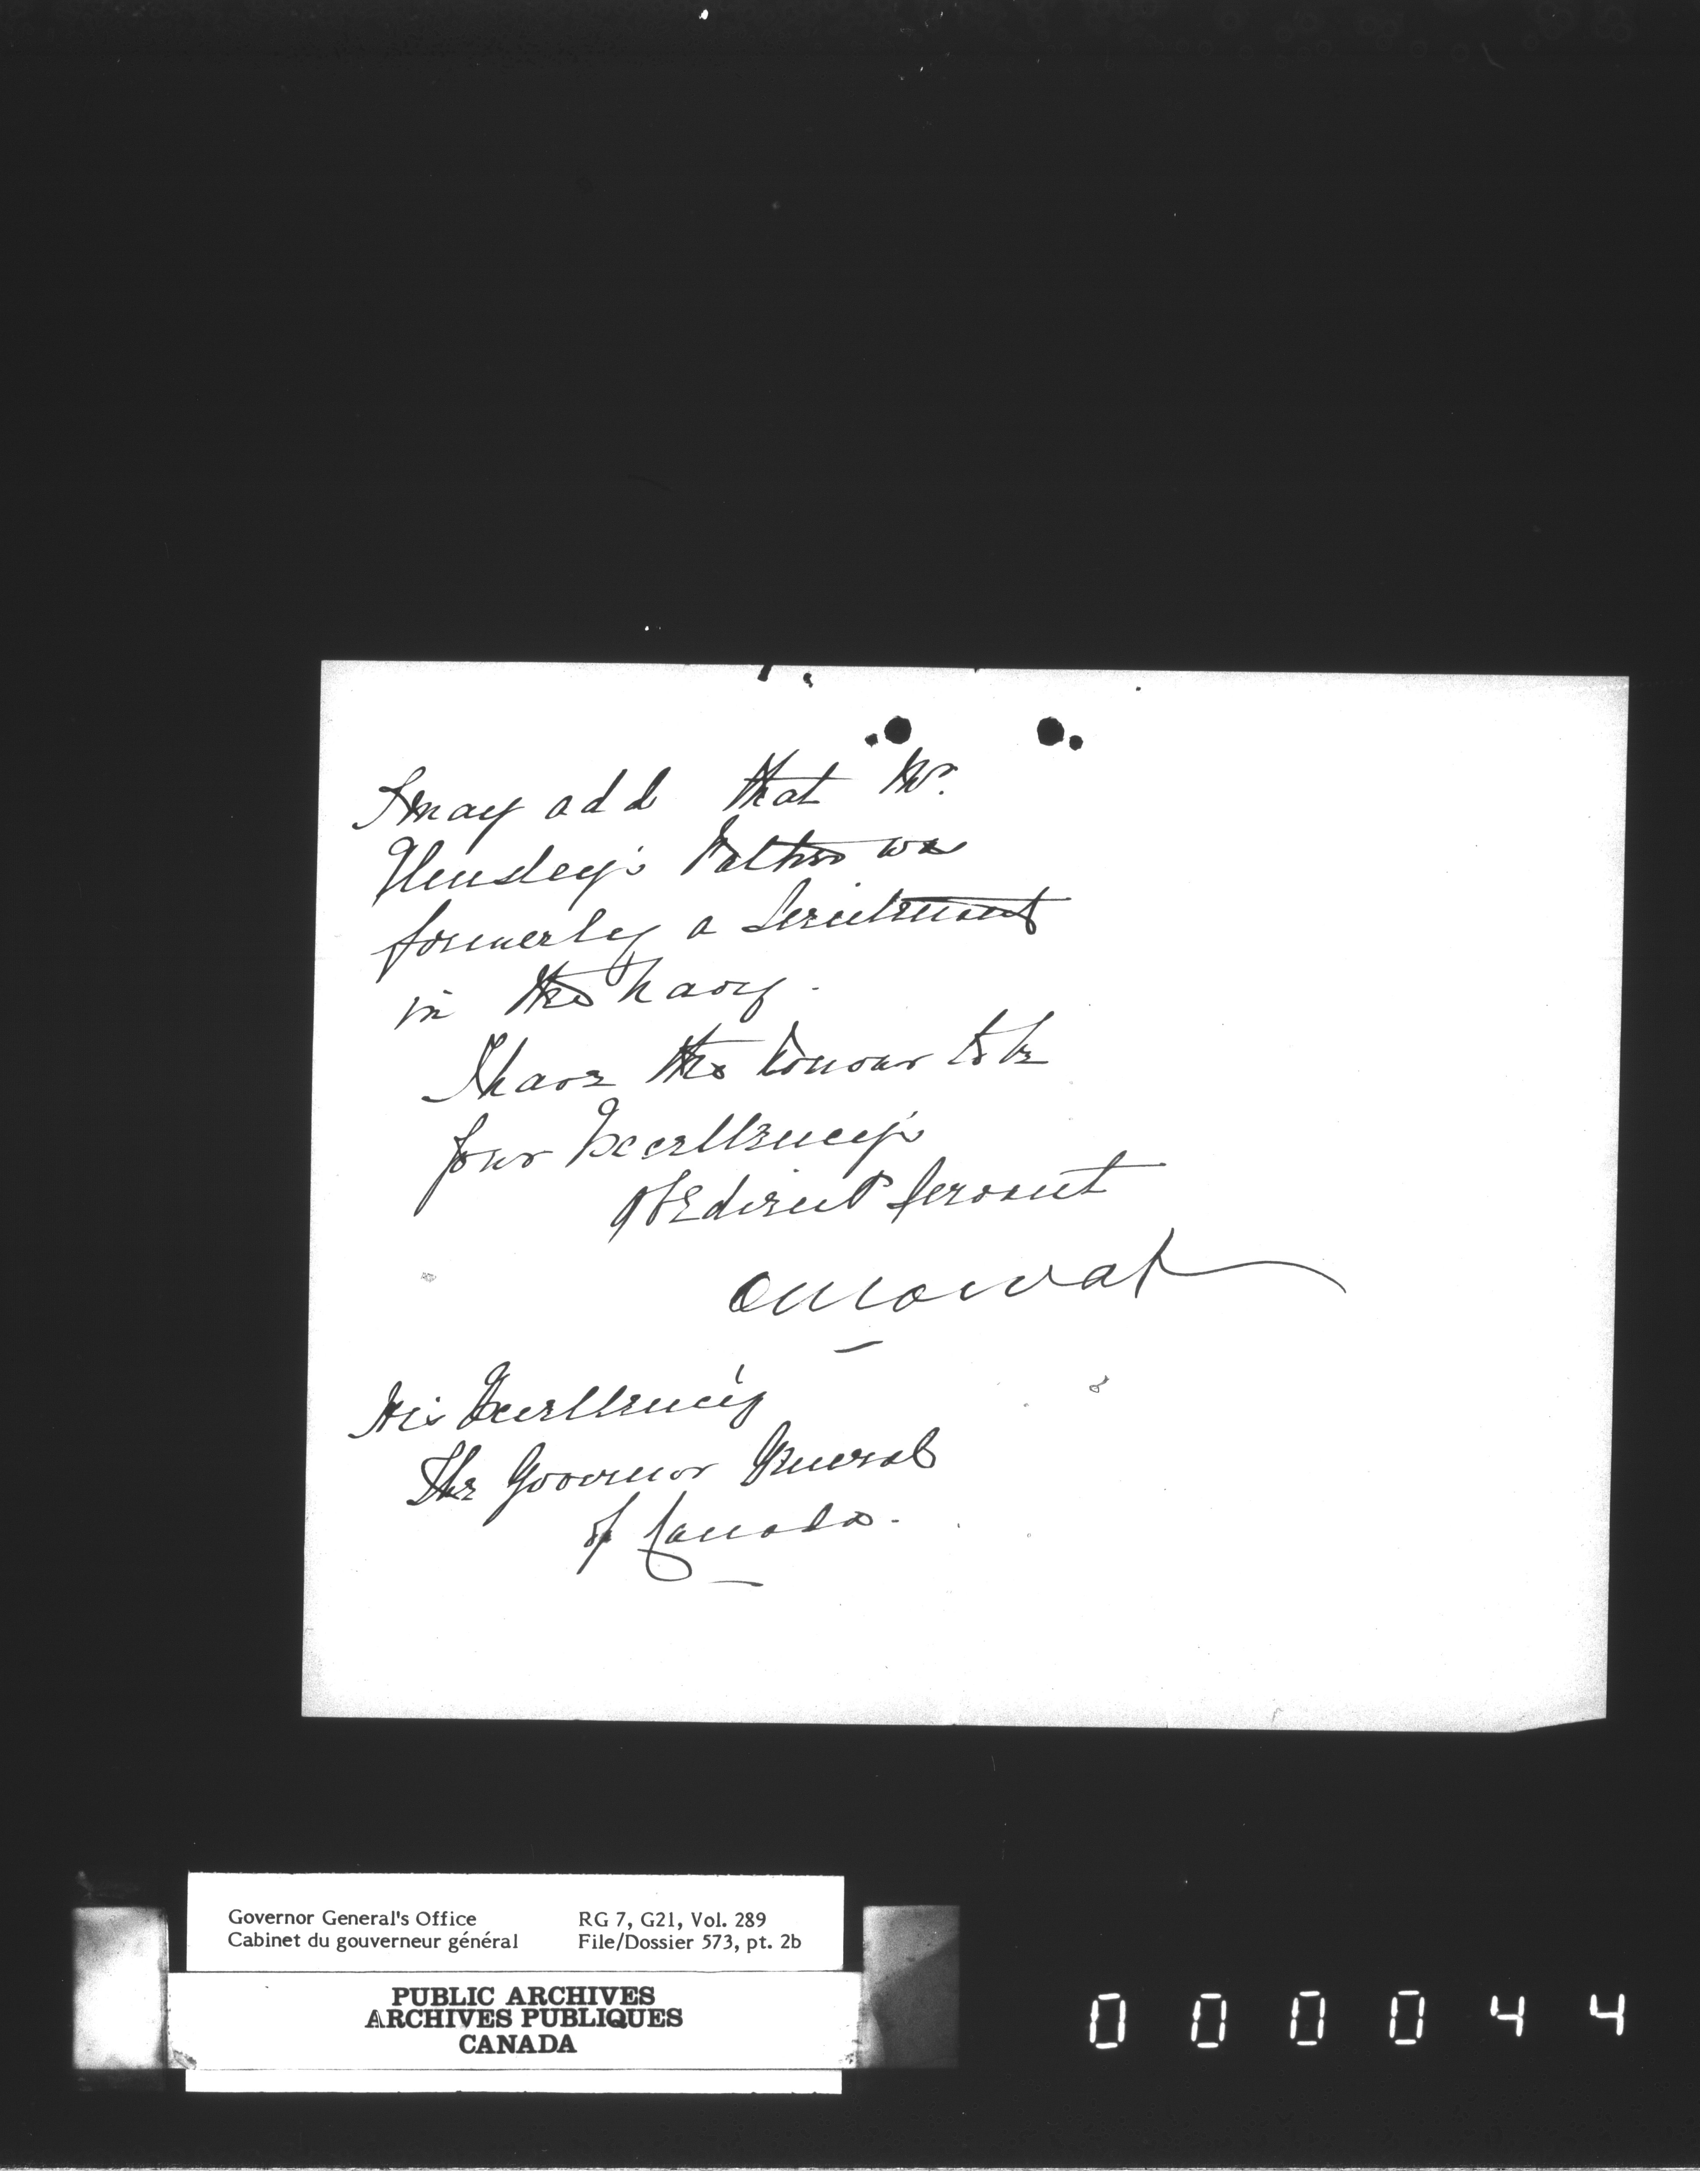 I may add that Mr.
Hensley's Father was
formerly a Lieutenant
in the Navy.
I have the honour to be
Your Excellency's
Obedient Servant
O Mowat
His Excellency
The Governor General
of Canada.
Governor General's Office
Cabinet du gouverneur général
RG 7, G21, Vol. 289
File/Dossier 573, pt. 2b
PUBLIC ARCHIVES
ARCHIVES PUBLIQUES
CANADA
000044